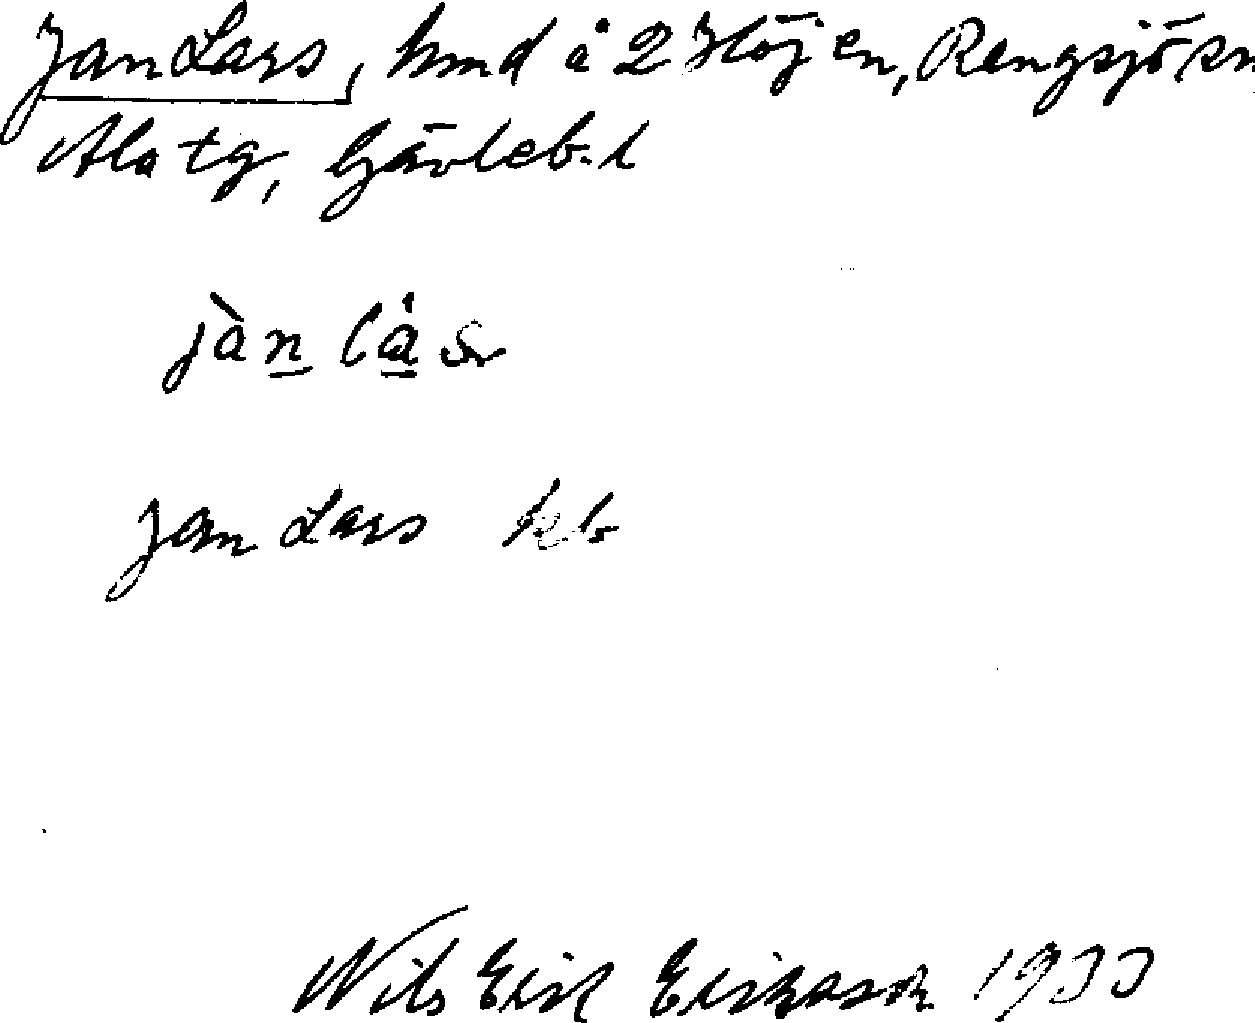 Jan Lars, hmd å 2 Höjen, Rengsjö sn
Ala tg, Gävleb. l
jàn lás
Jan Lars kb
Nils Erik Eriksson 1933